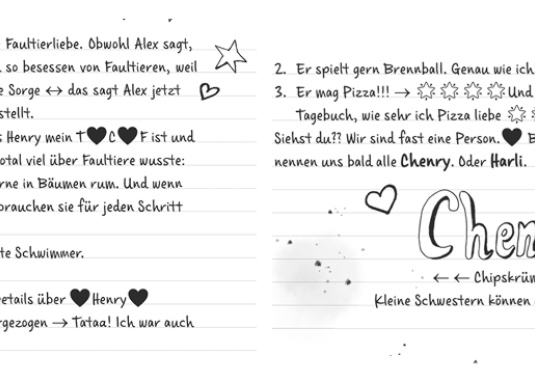 Faultierliebe. Obwohl Alex sagt,
so besessen von Faultieren, weil
Sorge ↔ das sagt Alex jetzt
stellt.
Henry mein T♥C♥F ist und
total viel über Faultiere wusste:
rne in Bäumen rum. Und wenn
brauchen sie für jeden Schritt
te Schwimmer.
etails über ♥Henry♥
rgezogen → Tataa! Ich war auch
2. Er spielt gern Brennball. Genau wie ich
3. Er mag Pizza!!! → Und
Tagebuch, wie sehr ich Pizza liebe
Siehst du?? Wir sind fast eine Person. ♥
nennen uns bald alle Chenry. Oder Harli.
Chen
← ← Chipskrüm
Kleine Schwestern können